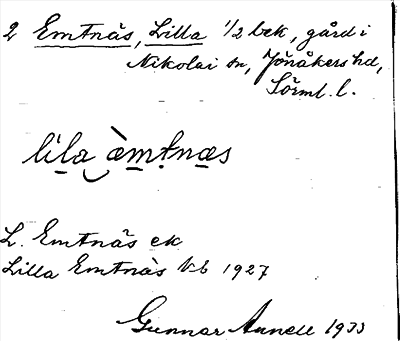 2 Emtnäs, Lilla 1/2 bek, gård i
Nikolai sn, Jönåkers hd,
Sörml. l.
li̱la̮ æ̀m̱ṯnæ̱s
L. Emtnäs ek
Lilla Emtnäs kb 1927
Gunnar Annell 1933